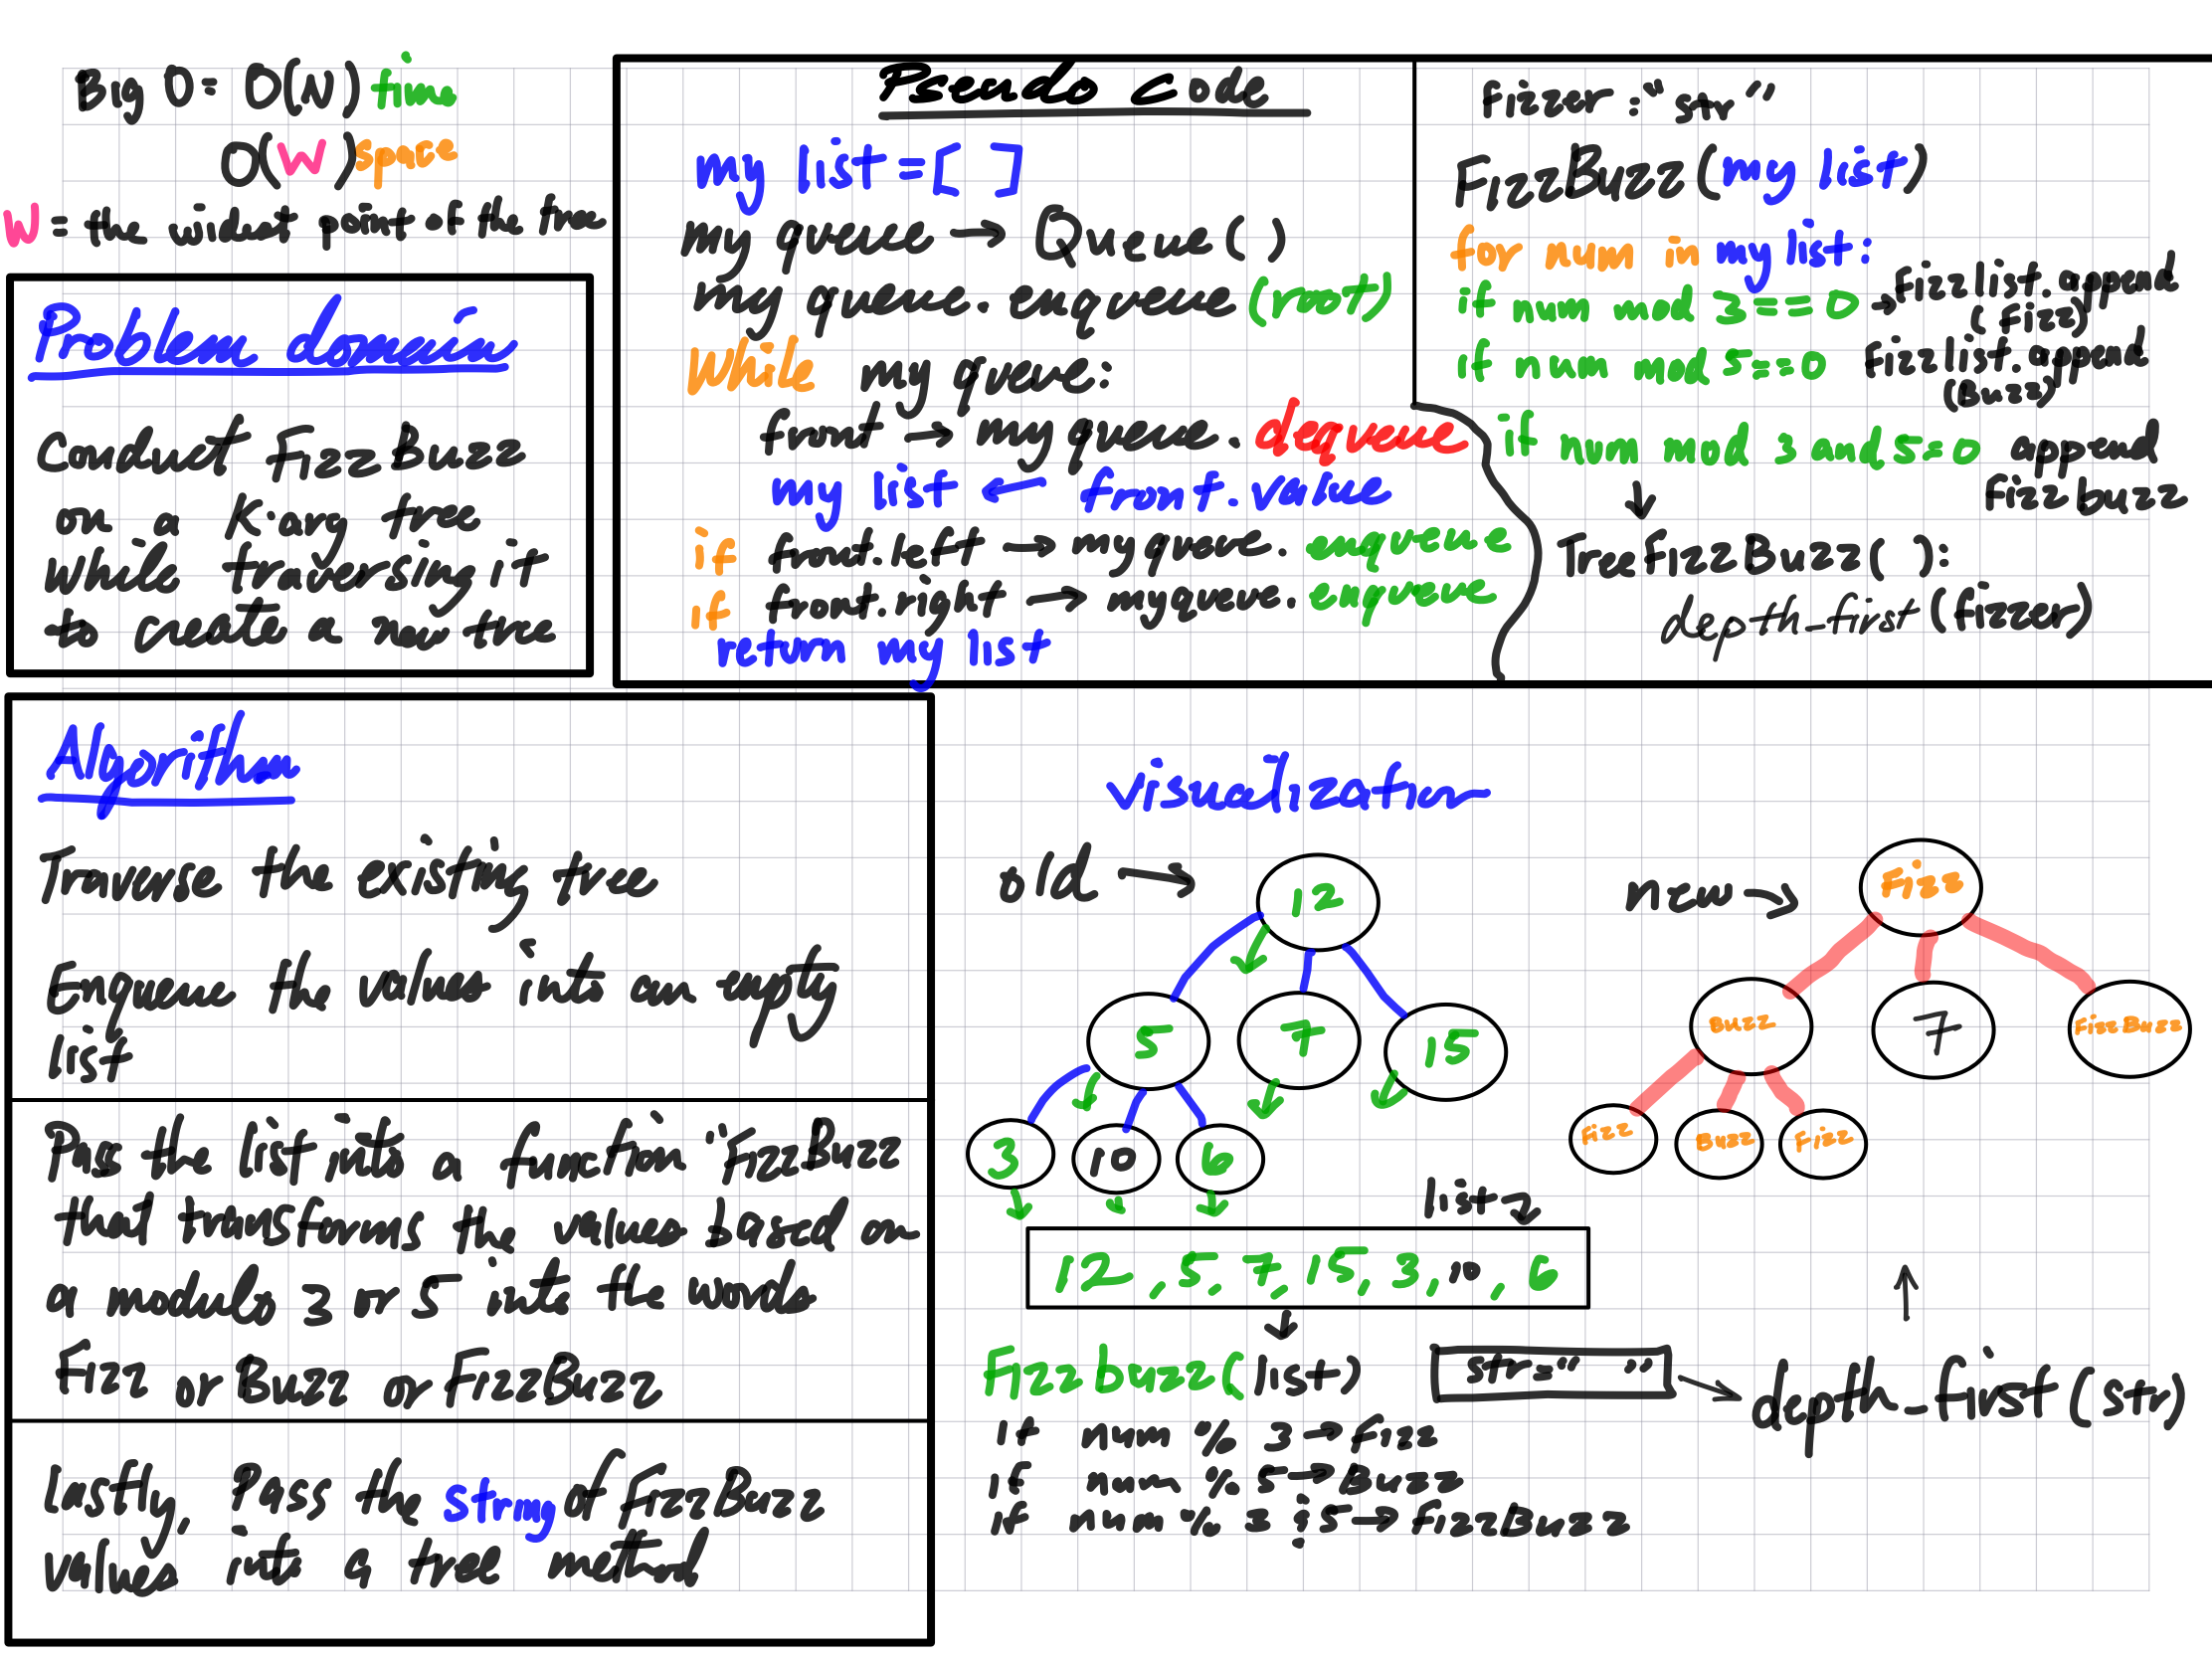 Big O = O(N) time
O(W) space
W = the widest point of the tree
Problem domain
Conduct FizzBuzz
on a K-ary tree
while traversing it
to create a new tree
Pseudo Code
my list = [ ]
my queue → Queue( )
my queue.enqueue (root)
While my queue:
front → my queue.dequeue
my list ← front.value
if front.left → my queue.enqueue
if front.right → my queue.enqueue
return my list
Fizzer : "str"
FizzBuzz(my list)
for num in my list:
if num mod 3 == 0 → Fizzlist.append
(Fizz)
if num mod 5 == 0 Fizzlist.append
(Buzz)
if num mod 3 and 5 = 0 append
Fizzbuzz
↓
TreeFizzBuzz( ):
depth_first (fizzer)
Algorithm
Traverse the existing tree
Enqueue the values into an empty
list
Pass the list into a function "FizzBuzz
that transforms the values based on
a modulo 3 or 5 into the words
Fizz or Buzz or FizzBuzz
Lastly, Pass the string of FizzBuzz
values into a tree method
visualization
old →
12
5 7 15
3 10 6
new →
Fizz
Buzz 7 FizzBuzz
Fizz Buzz Fizz
list
12, 5, 7, 15, 3, 10, 6
↓
Fizzbuzz(list)
str = " " → depth_first (str)
if num % 3 → Fizz
if num % 5 → Buzz
if num % 3 & 5 → FizzBuzz